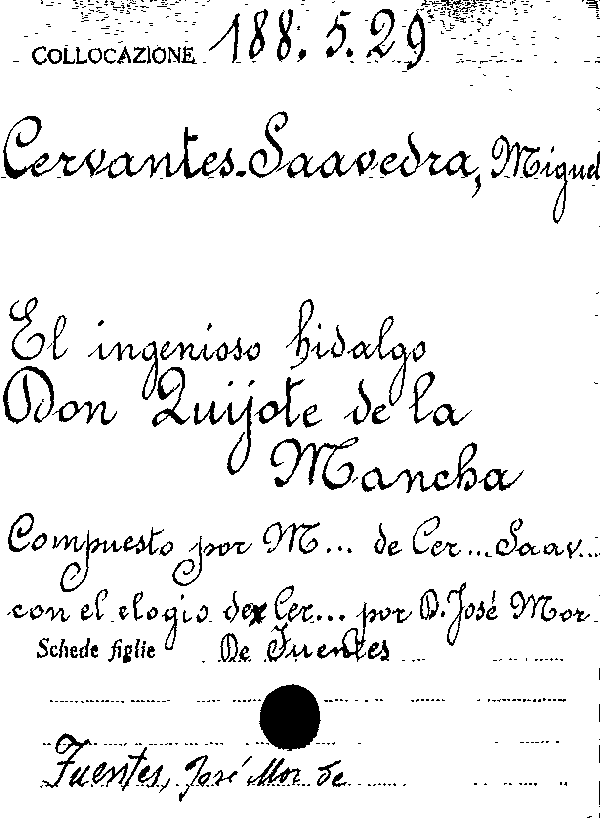 COLLOCAZIONE 188. 5. 29
Cervantes-Saavedra, Miguel
El ingenioso hidalgo
Don Quijote de la
Mancha
Compuesto por M... de Cer... Saav...
con el elogio de Cer... por D. José Mor
Schede figlie De Fuentes
Fuentes, José Mor de